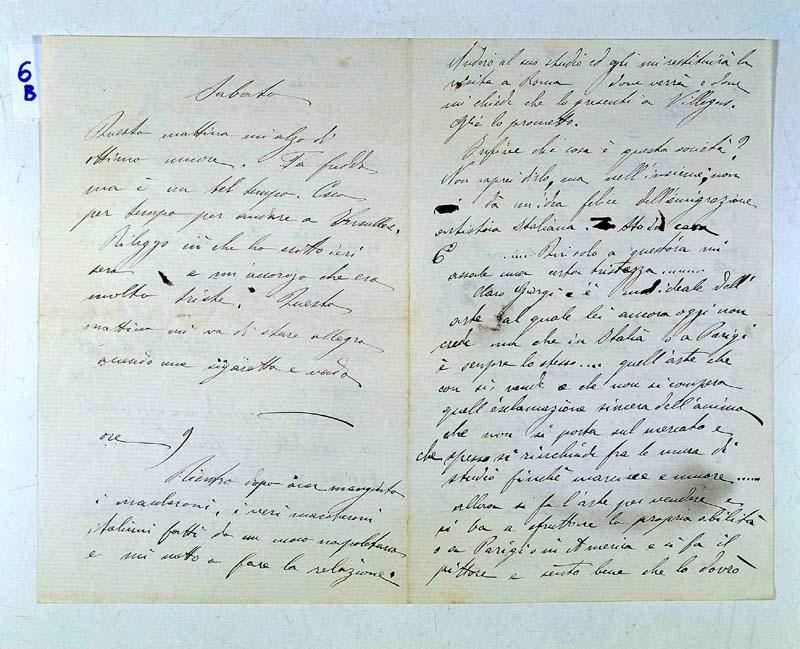 6
B
Sabato
Questa mattina mi alzo di
ottimo umore. Fa freddo
ma è un bel tempo. Esco
per tempo per andare a Versailles.
Rileggo ciò che ho scritto ieri
sera e mi accorgo che era
molto triste. Questa
mattina mi va di stare allegro
accendo una sigaretta e vado
ore 9
Rientro dopo aver mangiato
i maccheroni, i veri maccheroni
italiani fatti da un cuoco napoletano
e mi metto a fare la relazione.
Andrò al suo studio ed egli mi restituirà la
visita a Roma dove verrà e dove
mi chiede che lo presenti a Villegas.
Glie lo prometto.
Infine che cosa è questa società?
Non saprei dirlo, ma nell'insieme, non
dà un'idea felice dell'emigrazione
artistica Italiana.
.... Qui solo a quest'ora mi
assale una certa tristezza .......
Caro Giorgi c'è un ideale dell'
arte al quale lei ancora oggi non
crede ma che in Italia o a Parigi
è sempre lo stesso .... quell'arte che
non si vende e che non si compera
quell'esclamazione sincera dell'anima
che non si porta sul mercato e
che spesso si rinchiude fra le mura di
studio finchè marisce e muore .....
allora si fa l'arte per vendere e
si va a sfruttare la propria abilità
o a Parigi o in America e si fa il
pittore e sento bene che lo dovrò